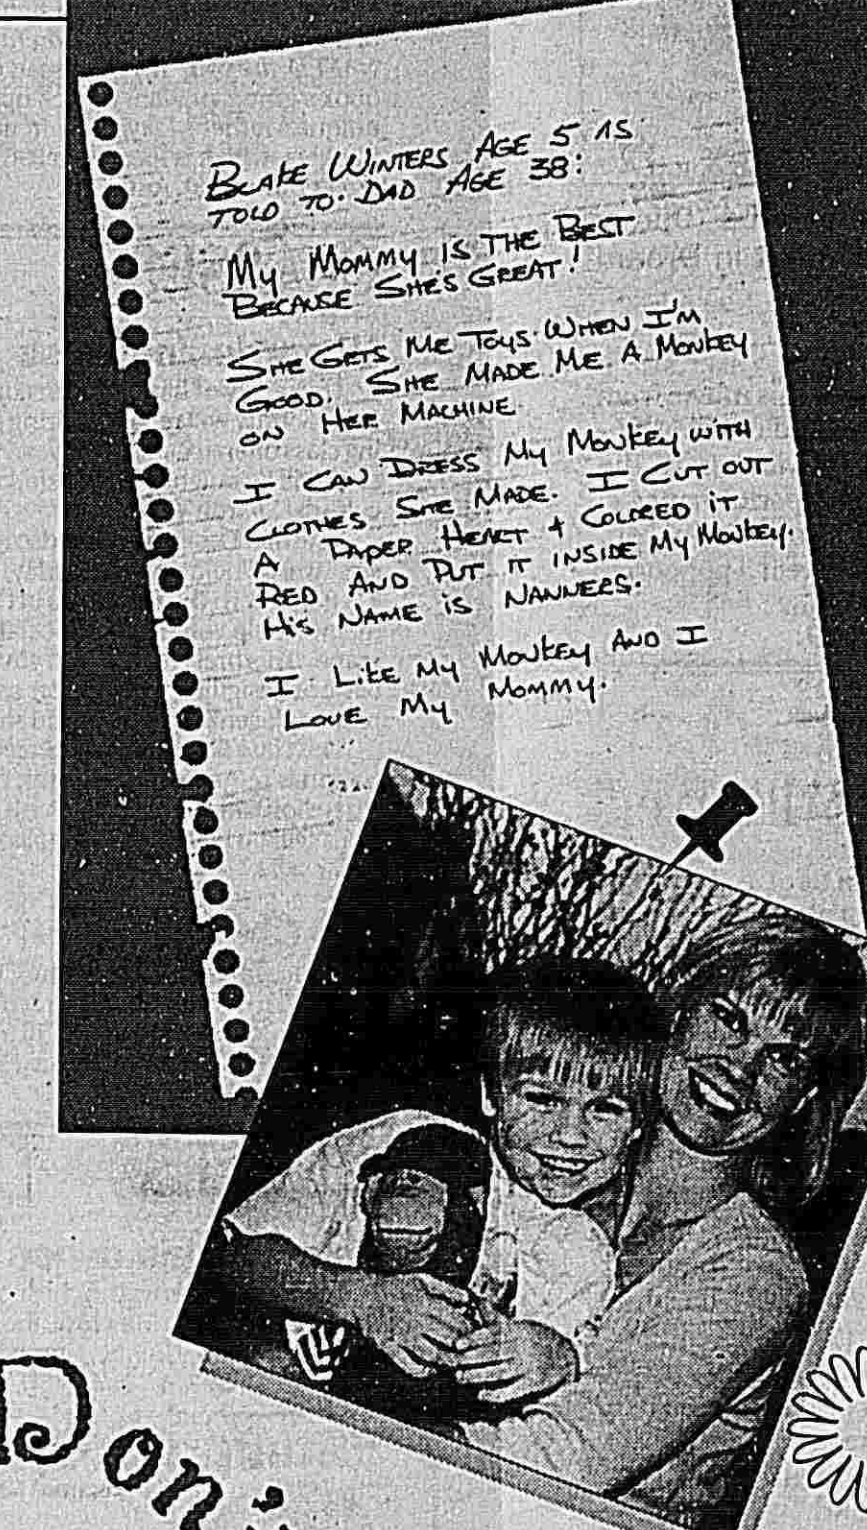 BLAKE WINTERS AGE 5 AS
TOLD TO DAD AGE 38:
MY MOMMY IS THE BEST
BECAUSE SHE'S GREAT!
SHE GETS ME TOYS WHEN I'M
GOOD. SHE MADE ME A MONKEY
ON HER MACHINE
I CAN DRESS MY MONKEY WITH
CLOTHES SHE MADE. I CUT OUT
A PAPER HEART + COLORED IT
RED AND PUT IT INSIDE MY MONKEY.
HIS NAME IS NANNERS.
I LIKE MY MONKEY AND I
LOVE MY MOMMY.
Don